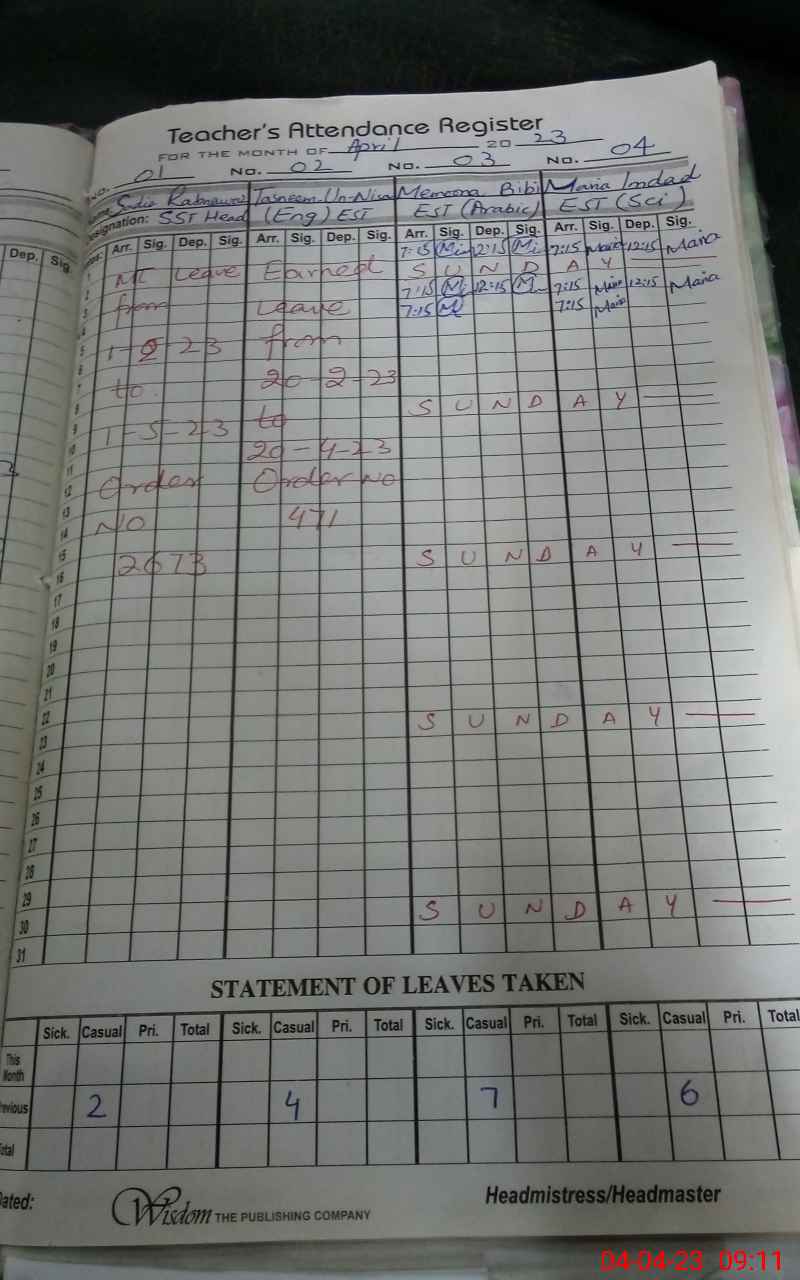 Teacher's Attendance Register
FOR THE MONTH OF April 20 23
No. 01 No. 02 No. 03 No. 04
Tasneem-Un-Nisa Memoona Bibi Maria Imdad
Designation: SST Head (Eng) EST EST (Arabic) EST (Sci)
Dep. Sig. Arr. Sig. Dep. Sig. Arr. Sig. Dep. Sig. Arr. Sig. Dep. Sig. Arr. Sig. Dep. Sig.
1 Leave Earned 7:15 12:15 7:15 Maria 12:15 Maria
2 S U N D A Y
3 from Leave 7:15 12:15 7:15 Maria 12:15 Maria
4 7:15 7:15 Maria
5 1-2-23 from
6
7 to 20-2-23
8
9 1-5-23 to S U N D A Y
10 20-4-23
11
12 Order Order No
13
14 No 471
15
16 2673 S U N D A Y
17
18
19
20
21
22
23 S U N D A Y
24
25
26
27
28
29
30 S U N D A Y
31
STATEMENT OF LEAVES TAKEN
Sick. Casual Pri. Total Sick. Casual Pri. Total Sick. Casual Pri. Total Sick. Casual Pri. Total
This Month
Previous 2 4 7 6
Total
Dated:
Wisdom THE PUBLISHING COMPANY
Headmistress/Headmaster
04-04-23 09:11